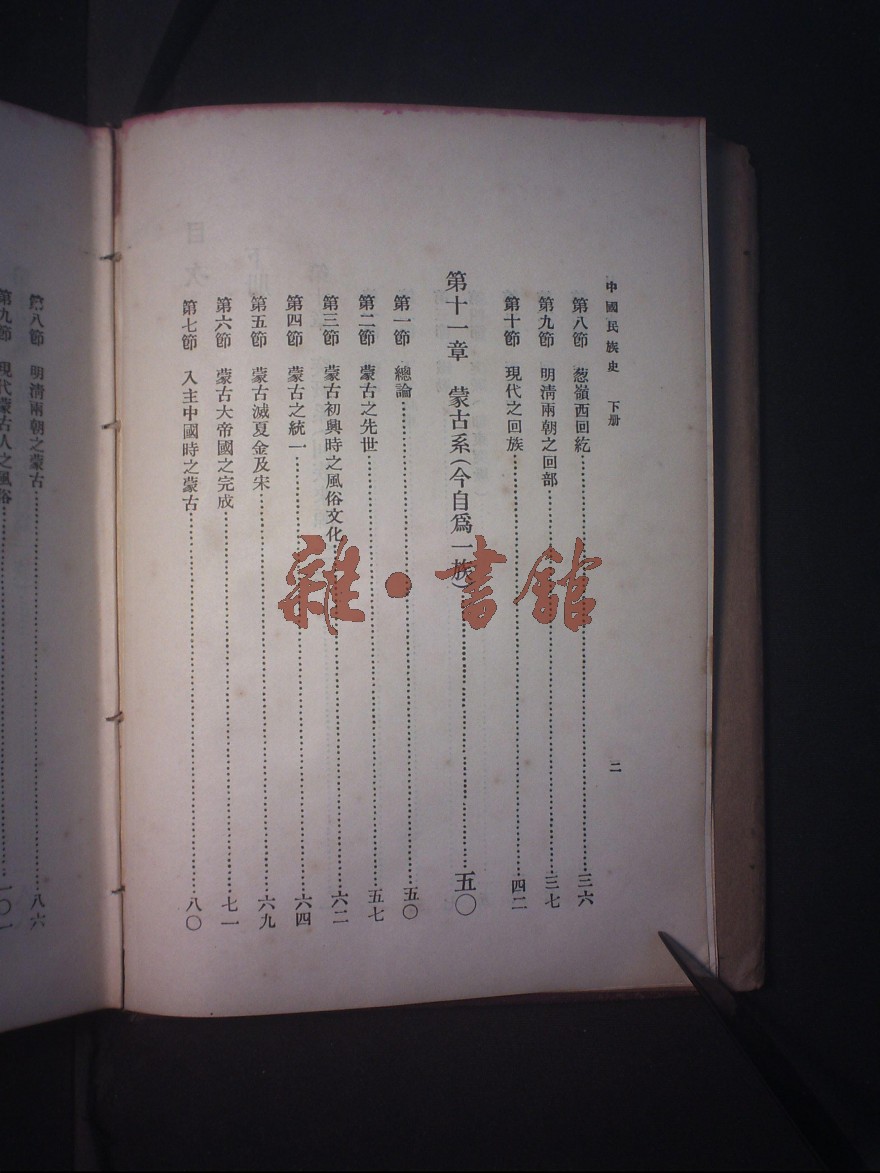 中國民族史　下册
二
第八節　葱嶺西回紇……三六
第九節　明清兩朝之回部……三七
第十節　現代之回族……四二
第十一章　蒙古系（今自爲一族）……五〇
第一節　總論……五〇
第二節　蒙古之先世……五七
第三節　蒙古初興時之風俗文化……六二
第四節　蒙古之統一……六四
第五節　蒙古滅夏金及宋……六九
第六節　蒙古大帝國之完成……七一
第七節　入主中國時之蒙古……八〇
第八節　明清兩朝之蒙古……八六
第九節　現代蒙古人之風俗……一〇一
雜·書館